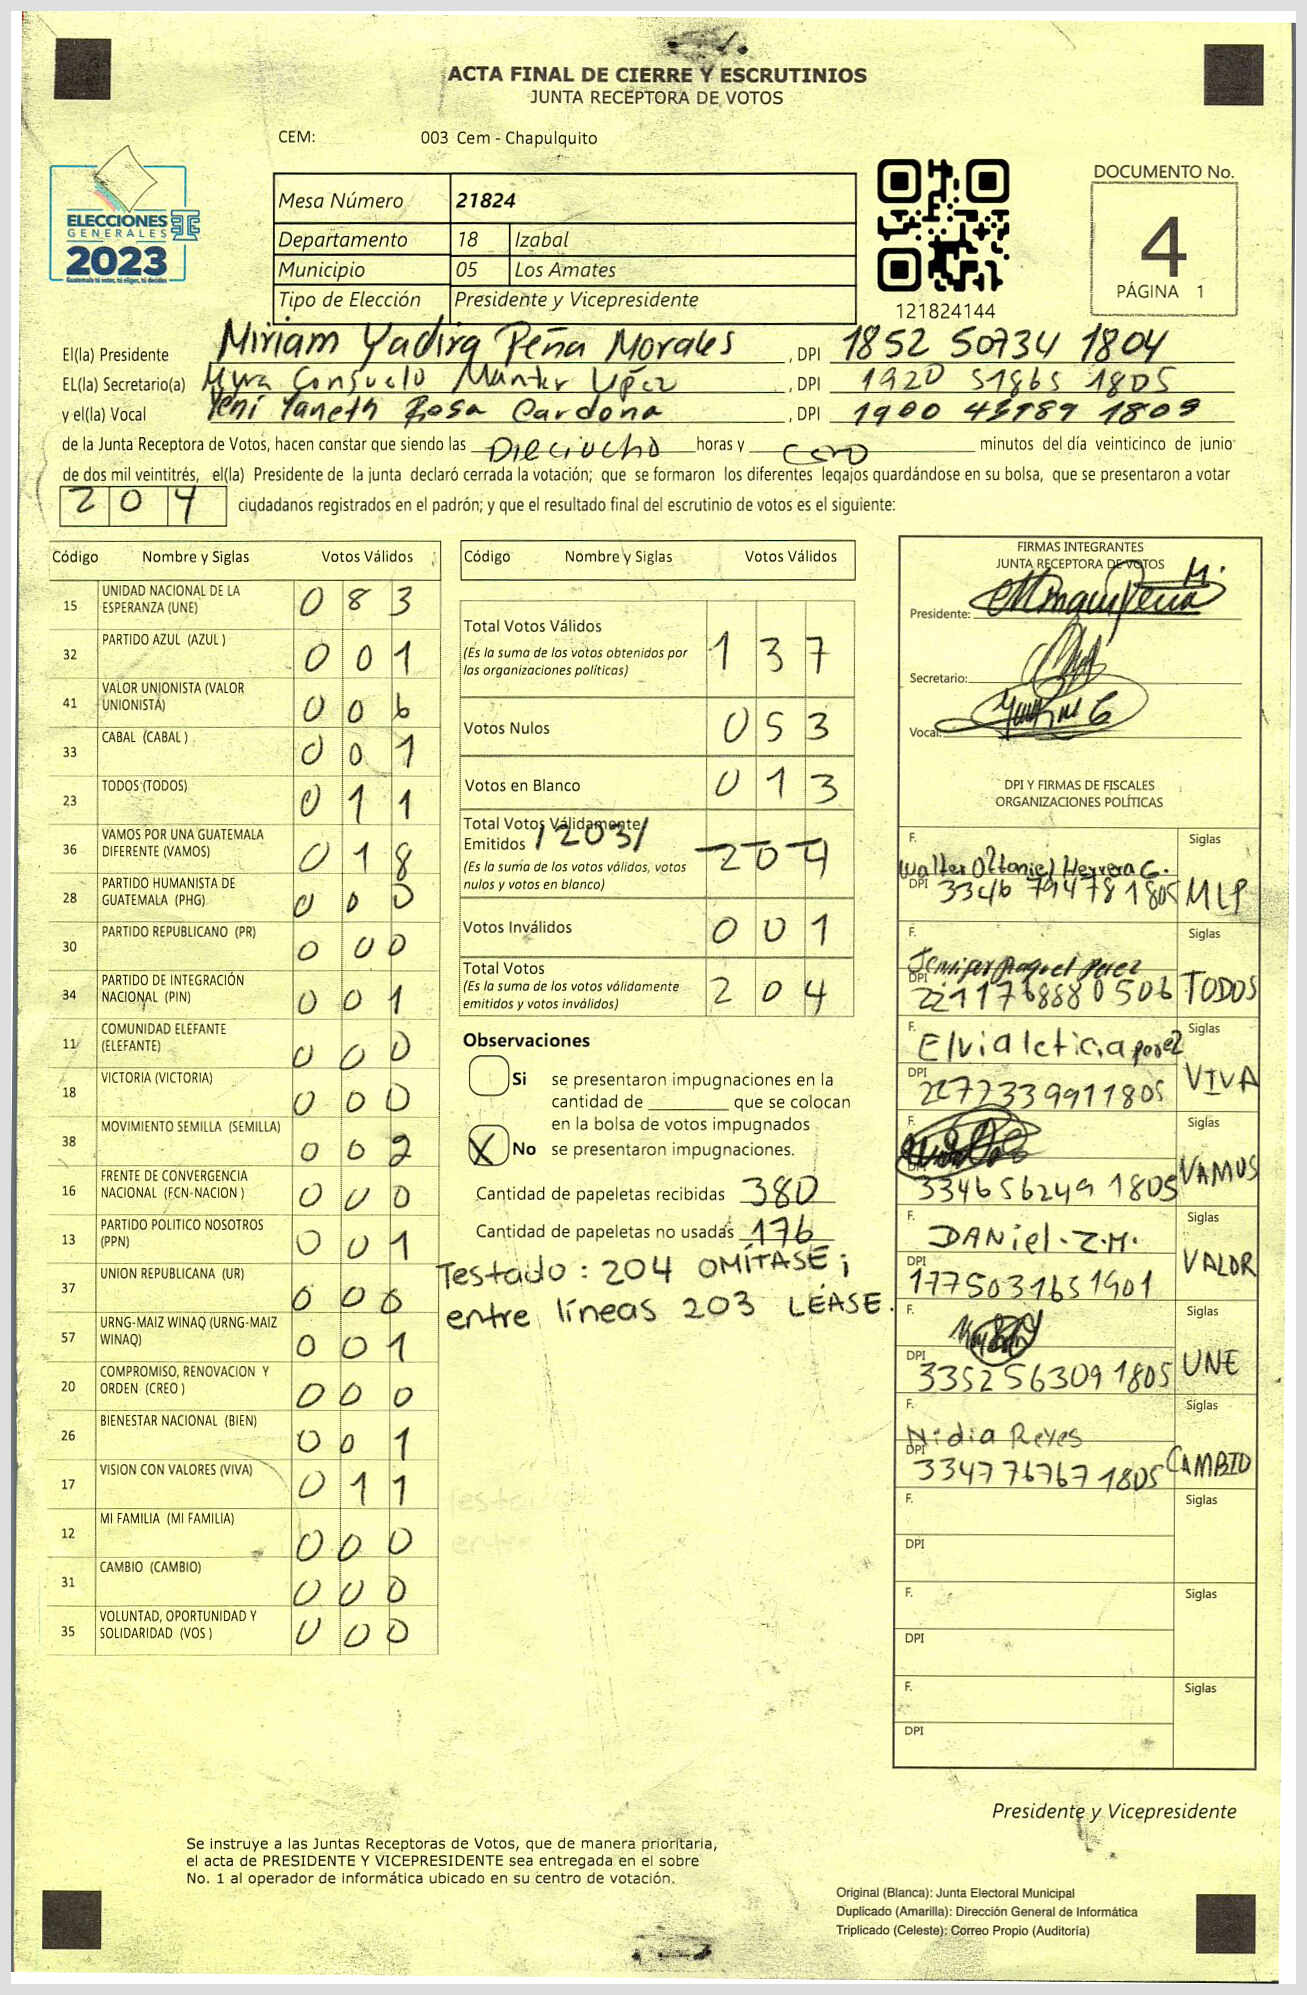 ACTA FINAL DE CIERRE Y ESCRUTINIOS
JUNTA RECEPTORA DE VOTOS
CEM: 003 Cem - Chapulquito
ELECCIONES
GENERALES
2023
Guatemala tú votas, tú eliges, tú decides
Mesa Número 21824
Departamento 18 Izabal
Municipio 05 Los Amates
Tipo de Elección Presidente y Vicepresidente
121824144
DOCUMENTO No.
4
PÁGINA 1
El(la) Presidente Miriam Yadira Peña Morales , DPI 1852 50734 1804
EL(la) Secretario(a) Myra Consuelo , DPI 1920 51865 1805
y el(la) Vocal Yeni Yaneth Rosa Cardona , DPI 1900 1809
de la Junta Receptora de Votos, hacen constar que siendo las Dieciocho horas y cero minutos del día veinticinco de junio
de dos mil veintitrés, el(la) Presidente de la junta declaró cerrada la votación; que se formaron los diferentes legajos guardándose en su bolsa, que se presentaron a votar
204 ciudadanos registrados en el padrón; y que el resultado final del escrutinio de votos es el siguiente:
Código Nombre y Siglas Votos Válidos
15 UNIDAD NACIONAL DE LA ESPERANZA (UNE) 083
32 PARTIDO AZUL (AZUL ) 001
41 VALOR UNIONISTA (VALOR UNIONISTA) 006
33 CABAL (CABAL ) 001
23 TODOS (TODOS) 011
36 VAMOS POR UNA GUATEMALA DIFERENTE (VAMOS) 018
28 PARTIDO HUMANISTA DE GUATEMALA (PHG) 000
30 PARTIDO REPUBLICANO (PR) 000
34 PARTIDO DE INTEGRACIÓN NACIONAL (PIN) 001
11 COMUNIDAD ELEFANTE (ELEFANTE) 000
18 VICTORIA (VICTORIA) 000
38 MOVIMIENTO SEMILLA (SEMILLA) 002
16 FRENTE DE CONVERGENCIA NACIONAL (FCN-NACION ) 000
13 PARTIDO POLITICO NOSOTROS (PPN) 001
37 UNION REPUBLICANA (UR) 000
57 URNG-MAIZ WINAQ (URNG-MAIZ WINAQ) 001
20 COMPROMISO, RENOVACION Y ORDEN (CREO ) 000
26 BIENESTAR NACIONAL (BIEN) 001
17 VISION CON VALORES (VIVA) 011
12 MI FAMILIA (MI FAMILIA) 000
31 CAMBIO (CAMBIO) 000
35 VOLUNTAD, OPORTUNIDAD Y SOLIDARIDAD (VOS ) 000
Código Nombre y Siglas Votos Válidos
Total Votos Válidos 137
(Es la suma de los votos obtenidos por
las organizaciones políticas)
Votos Nulos 053
Votos en Blanco 013
Total Votos Válidamente
Emitidos /203/ 204
(Es la suma de los votos válidos, votos
nulos y votos en blanco)
Votos Inválidos 001
Total Votos 204
(Es la suma de los votos válidamente
emitidos y votos inválidos)
Observaciones
Si se presentaron impugnaciones en la
cantidad de ________ que se colocan
en la bolsa de votos impugnados
X No se presentaron impugnaciones.
Cantidad de papeletas recibidas 380
Cantidad de papeletas no usadas 176
Testado: 204 OMÍTASE;
entre líneas 203 LÉASE.
FIRMAS INTEGRANTES
JUNTA RECEPTORA DE VOTOS
Presidente:
Secretario:
Vocal:
DPI Y FIRMAS DE FISCALES
ORGANIZACIONES POLÍTICAS
F. Walter Ottoniel Herrera G. Siglas
DPI 3346 79478 1805 MLP
F. Jennifer Raquel Perez Siglas
DPI 2211768880506 TODOS
F. Elvia leticia perez Siglas
DPI 2272339911805 VIVA
F. Siglas
DPI 334656249 1805 VAMOS
F. DANiel.Z.M. Siglas
DPI 1775031651901 VALOR
F. Siglas
DPI 335256309 1805 UNE
F. Nidia Reyes Siglas
DPI 334776767 1805 CAMBIO
F. Siglas
DPI
F. Siglas
DPI
F. Siglas
DPI
Presidente y Vicepresidente
Se instruye a las Juntas Receptoras de Votos, que de manera prioritaria,
el acta de PRESIDENTE Y VICEPRESIDENTE sea entregada en el sobre
No. 1 al operador de informática ubicado en su centro de votación.
Original (Blanca): Junta Electoral Municipal
Duplicado (Amarilla): Dirección General de Informática
Triplicado (Celeste): Correo Propio (Auditoría)